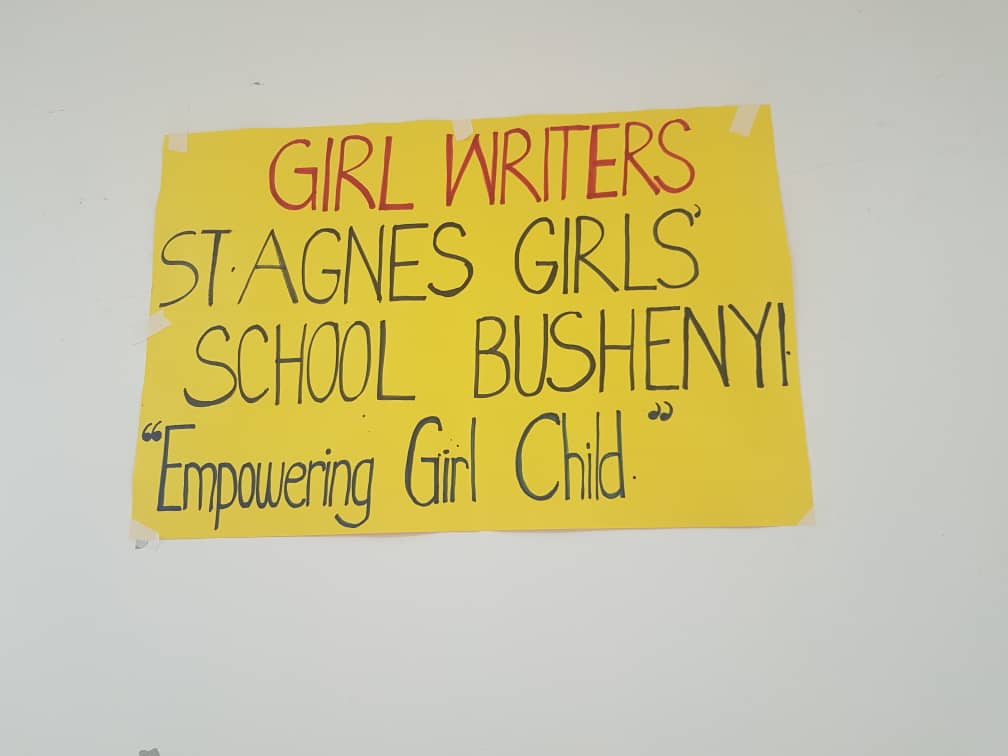 GIRL WRITERS
ST. AGNES GIRLS'
SCHOOL BUSHENYI.
"Empowering Girl Child."